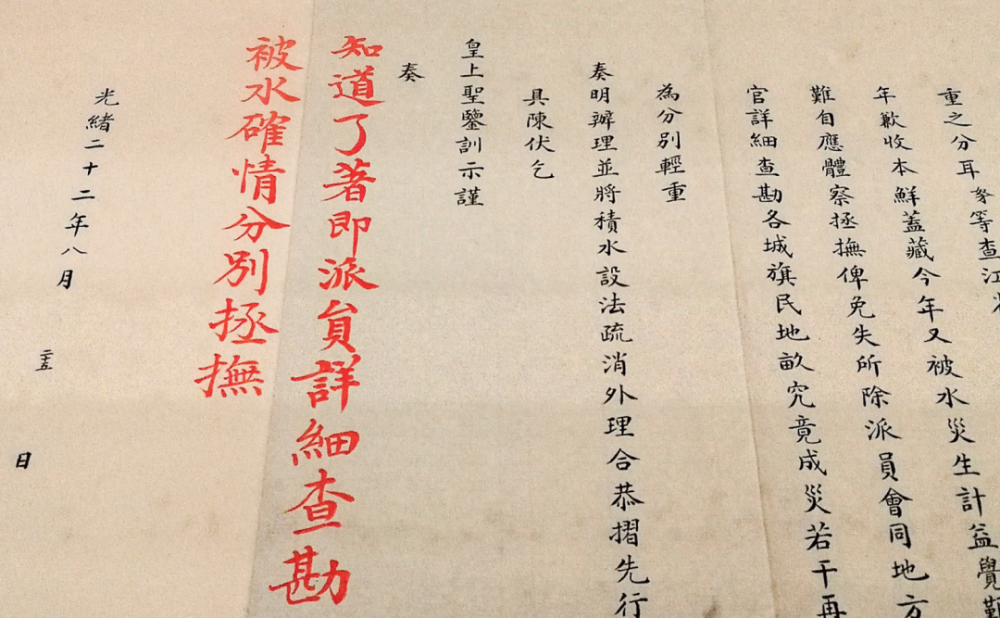 重之分耳奴才等查江省
年歉收本鮮蓋藏今年又被水災生計益覺艱
難自應體察拯撫俾免失所除派員會同地方
官詳細查勘各城旗民地畝究竟成災若干再
為分別輕重
奏明辦理並將積水設法疏消外理合恭摺先行
具陳伏乞
皇上聖鑒訓示謹
奏
知道了著即派員詳細查勘
被水確情分別拯撫
光緒二十二年八月 二十五 日